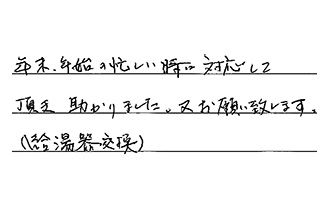 年末、年始の忙しい時に対応して
頂き助かりました。又お願い致します。
(給湯器交換)